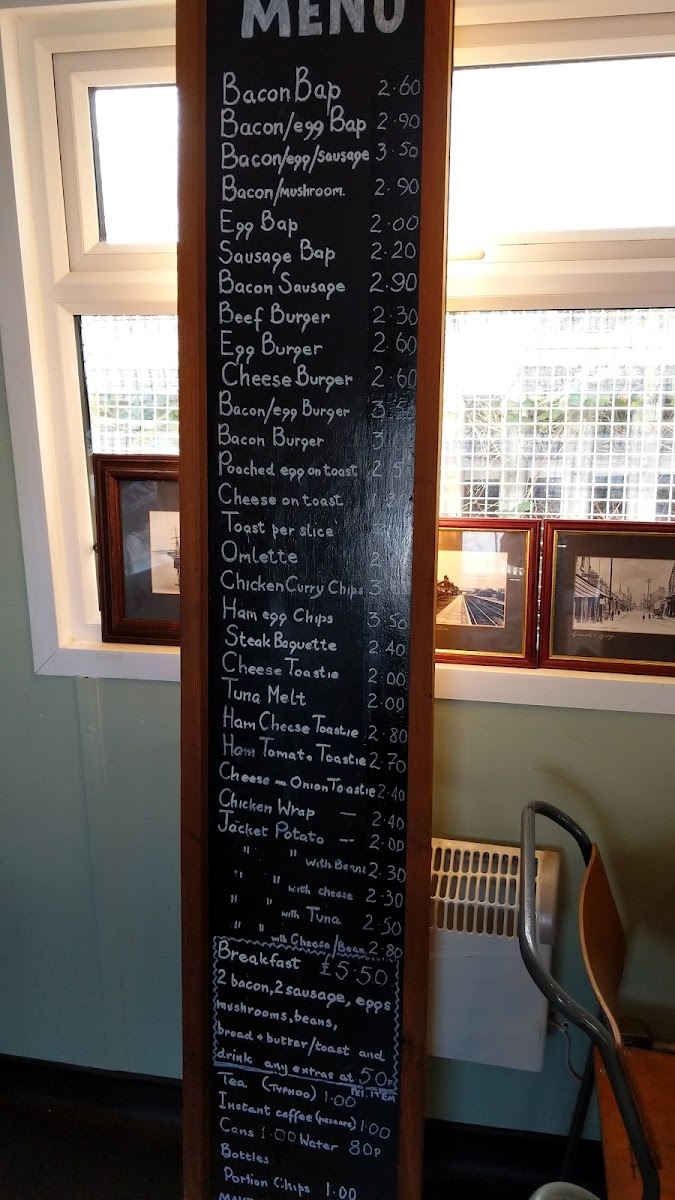 MENU
Bacon Bap 2.60
Bacon/egg Bap 2.90
Bacon/egg/sausage 3.50
Bacon/mushroom. 2.90
Egg Bap 2.00
Sausage Bap 2.20
Bacon Sausage 2.90
Beef Burger 2.30
Egg Burger 2.60
Cheese Burger 2.60
Bacon/egg Burger
Bacon Burger
Poached egg on toast
Cheese on toast
Toast per slice
Omlette
Chicken Curry Chips
Ham egg Chips 3.50
Steak Baguette 2.40
Cheese Toastie 2.00
Tuna Melt 2.00
Ham Cheese Toastie 2.80
Ham Tomato Toastie 2.70
Cheese Onion Toastie 2.40
Chicken Wrap — 2.40
Jacket Potato -- 2.00
" " with Beans 2.30
" " with cheese 2.30
" " with Tuna 2.50
" " with Cheese/Bean 2.80
Breakfast £5.50
2 bacon, 2 sausage, eggs
mushrooms, beans,
bread + butter/toast and
drink any extras at 50p
PER ITEM
Tea (TYPHOO) 1.00
Instant caffee 1.00
Cans 1.00 Water 80p
Bottles
Portion Chips 1.00